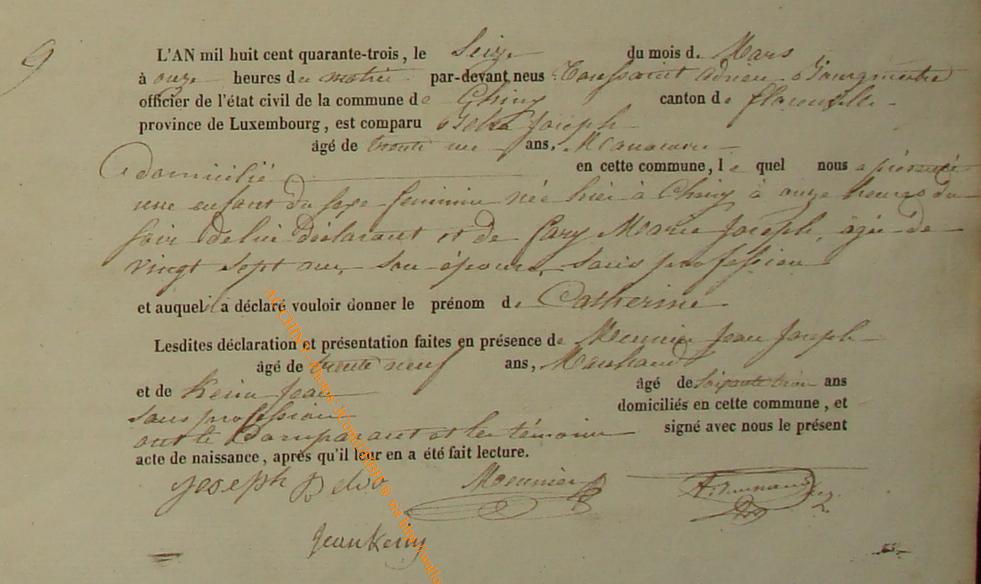 9
L'AN mil huit cent quarante-trois, le Seize du mois de Mars
à onze heures du matin par-devant nous Toussaint Adrien Bourgmestre
officier de l'état civil de la commune de Chiny canton de florenville
province de Luxembourg, est comparu Joseph
âgé de trente ans,
domicilié en cette commune, le quel nous a présenté
une enfant du sexe feminin née hier à Chiny à onze heures du
soir de lui déclarant et de Marie Joseph, âgée de
vingt sept ans, son épouse, sans profession
et auquel il a déclaré vouloir donner le prénom de Catherine
Lesdites déclaration et présentation faites en présence de Meunier Jean Joseph
âgé de trente neuf ans, Marchand
et de Jean âgé de soixante trois ans
sans profession domiciliés en cette commune, et
ont le Comparant et les témoins signé avec nous le présent
acte de naissance, après qu'il leur en a été fait lecture.
Joseph Meunier
Jean